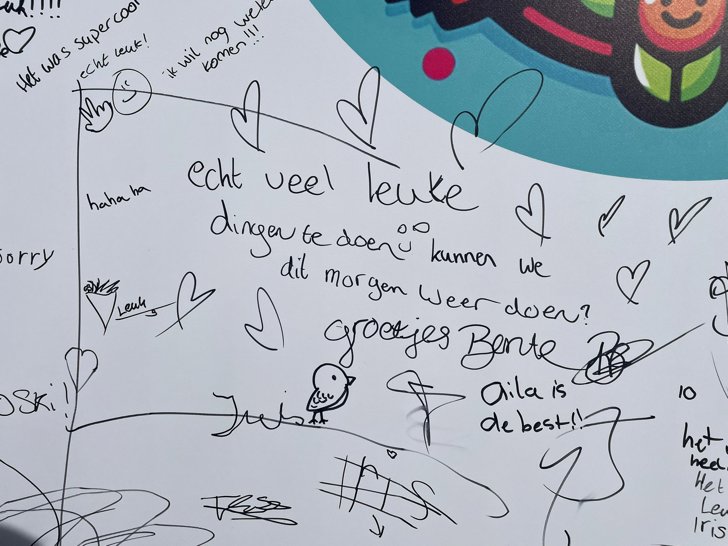 Het was supercool
echt leuk!
ik wil nog weken
komen !!!
hahaha
sorry
echt veel leuke
dingen te doen
kunnen we
dit morgen weer doen?
Leuk
groetjes Bente
Aila is
de best!!
Iris
10
het
heel
Het
Leu
Iris